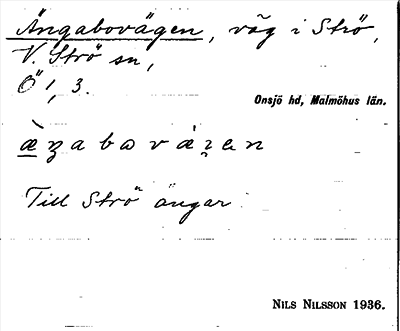 Ängabovägen, väg i Strö,
V. Strö sn,
Ö 1, 3.
Onsjö hd, Malmöhus län.
Till Strö ängar.
NILS NILSSON 1936.